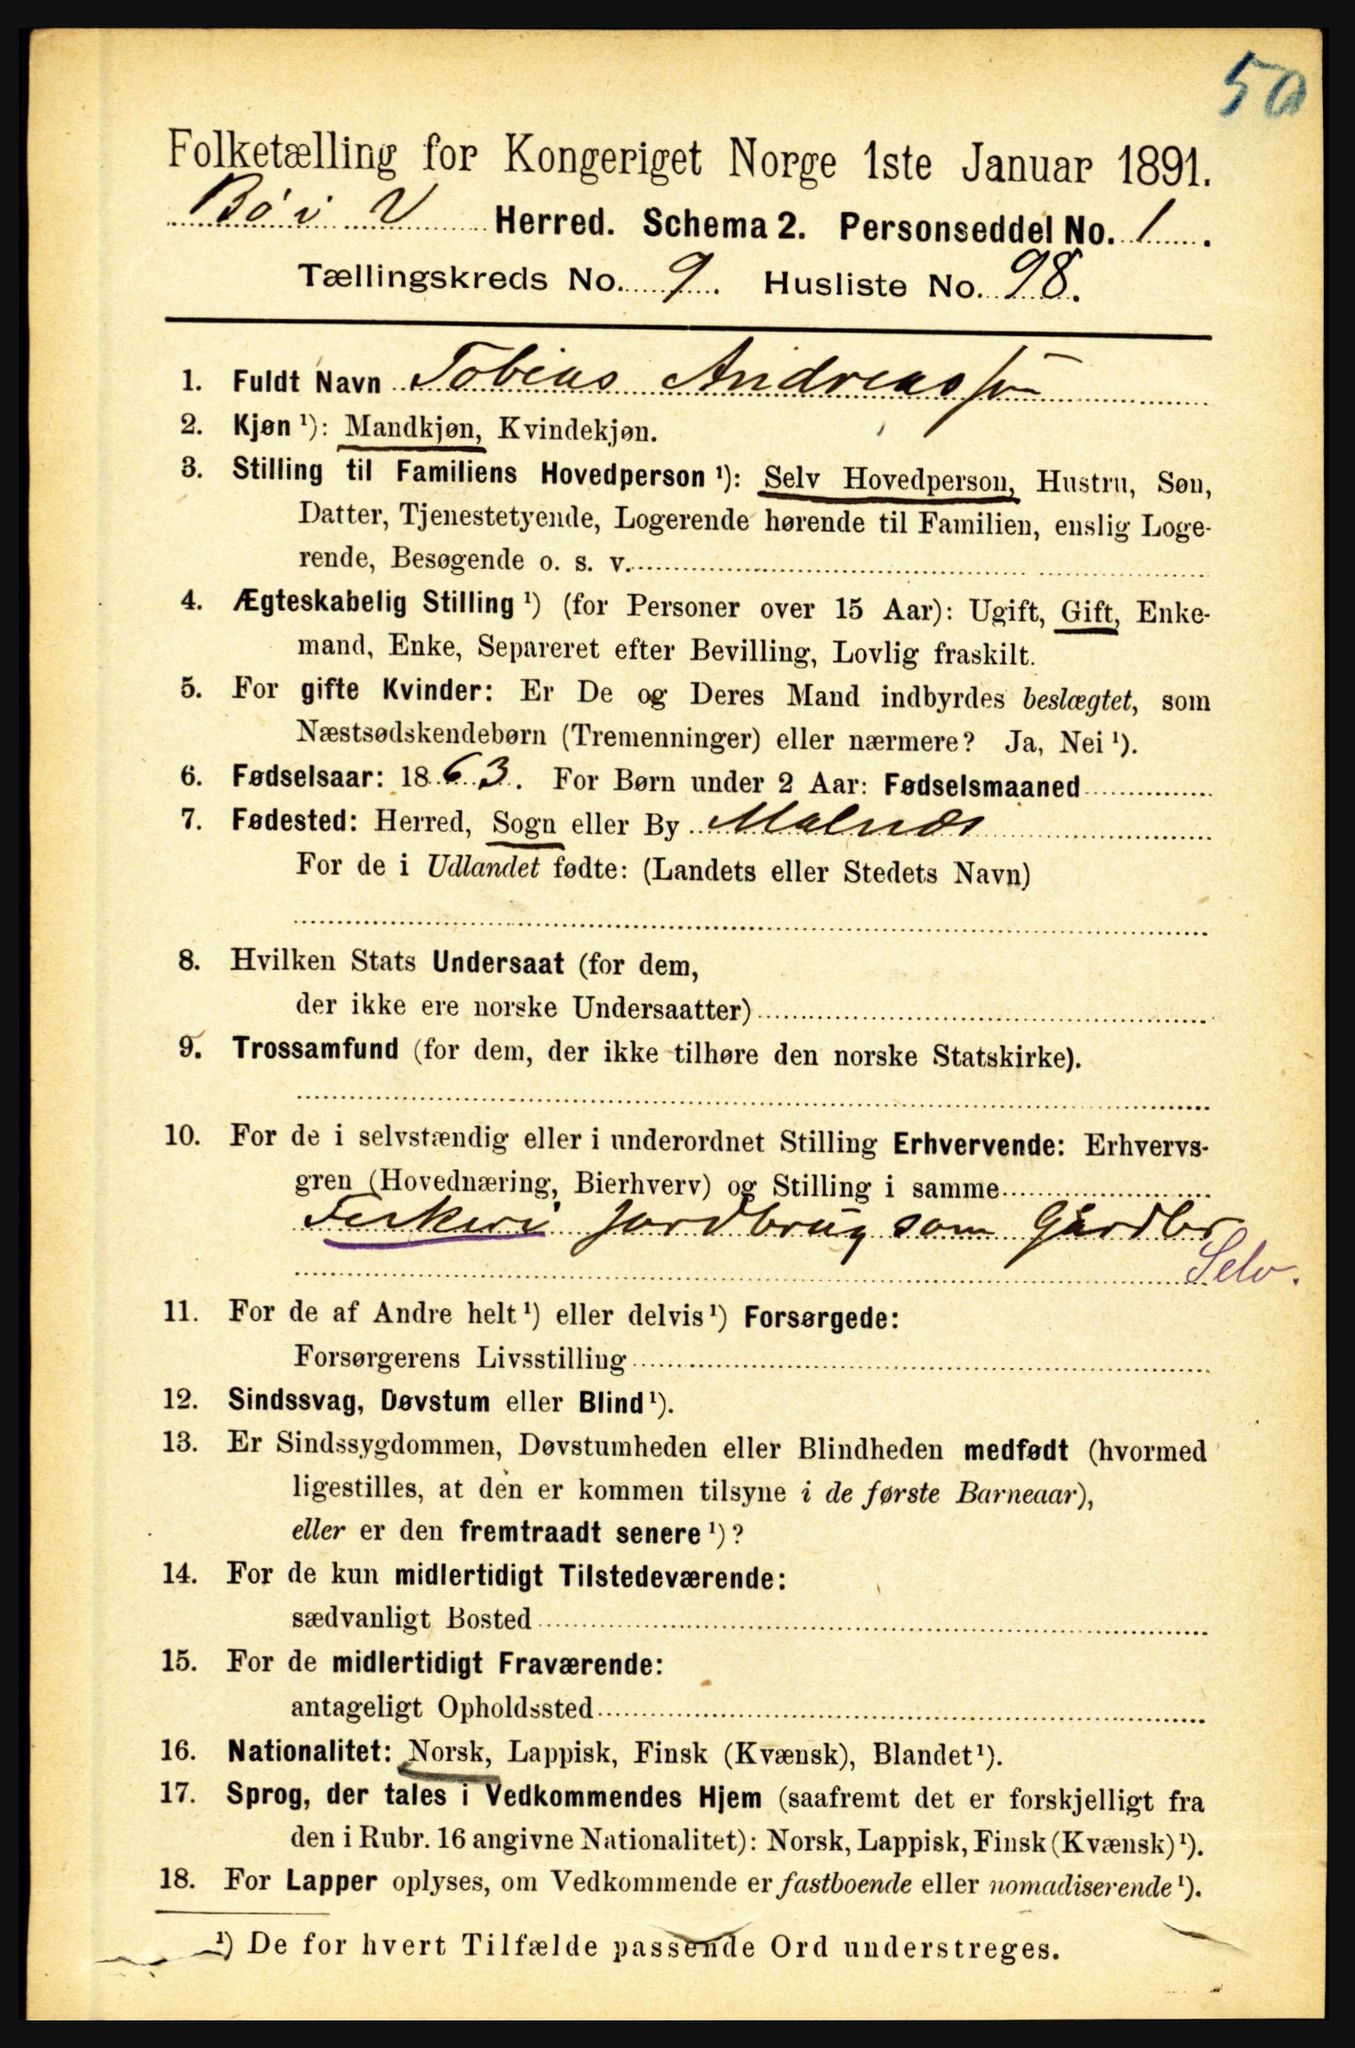 50
Folketælling for Kongeriget Norge 1ste Januar 1891.
Bø i V Herred. Schema 2. Personseddel No. 1.
Tællingskreds No. 9. Husliste No. 98.
1. Fuldt Navn Tobias Andreas
2. Kjøn ¹): Mandkjøn, Kvindekjøn.
3. Stilling til Familiens Hovedperson ¹): Selv Hovedperson, Hustru, Søn,
Datter, Tjenestetyende, Logerende hørende til Familien, enslig Loge-
rende, Besøgende o. s. v.
4. Ægteskabelig Stilling ¹) (for Personer over 15 Aar): Ugift, Gift, Enke-
mand, Enke, Separeret efter Bevilling, Lovlig fraskilt.
5. For gifte Kvinder: Er De og Deres Mand indbyrdes beslægtet, som
Næstsødskendebørn (Tremenninger) eller nærmere? Ja, Nei ¹).
6. Fødselsaar: 1863. For Børn under 2 Aar: Fødselsmaaned
7. Fødested: Herred, Sogn eller By Malnæs
For de i Udlandet fødte: (Landets eller Stedets Navn)
8. Hvilken Stats Undersaat (for dem,
der ikke ere norske Undersaatter)
9. Trossamfund (for dem, der ikke tilhøre den norske Statskirke).
10. For de i selvstændig eller i underordnet Stilling Erhvervende: Erhvervs-
gren (Hovednæring, Bierhverv) og Stilling i samme
Fiskeri jordbrug som Gårdbr
Selv.
11. For de af Andre helt ¹) eller delvis ¹) Forsørgede:
Forsørgerens Livsstilling
12. Sindssvag, Døvstum eller Blind ¹).
13. Er Sindssygdommen, Døvstumheden eller Blindheden medfødt (hvormed
ligestilles, at den er kommen tilsyne i de første Barneaar),
eller er den fremtraadt senere ¹)?
14. For de kun midlertidigt Tilstedeværende:
sædvanligt Bosted
15. For de midlertidigt Fraværende:
antageligt Opholdssted
16. Nationalitet: Norsk, Lappisk, Finsk (Kvænsk), Blandet ¹).
17. Sprog, der tales i Vedkommendes Hjem (saafremt det er forskjelligt fra
den i Rubr. 16 angivne Nationalitet): Norsk, Lappisk, Finsk (Kvænsk) ¹).
18. For Lapper oplyses, om Vedkommende er fastboende eller nomadiserende ¹).
¹) De for hvert Tilfælde passende Ord understreges.